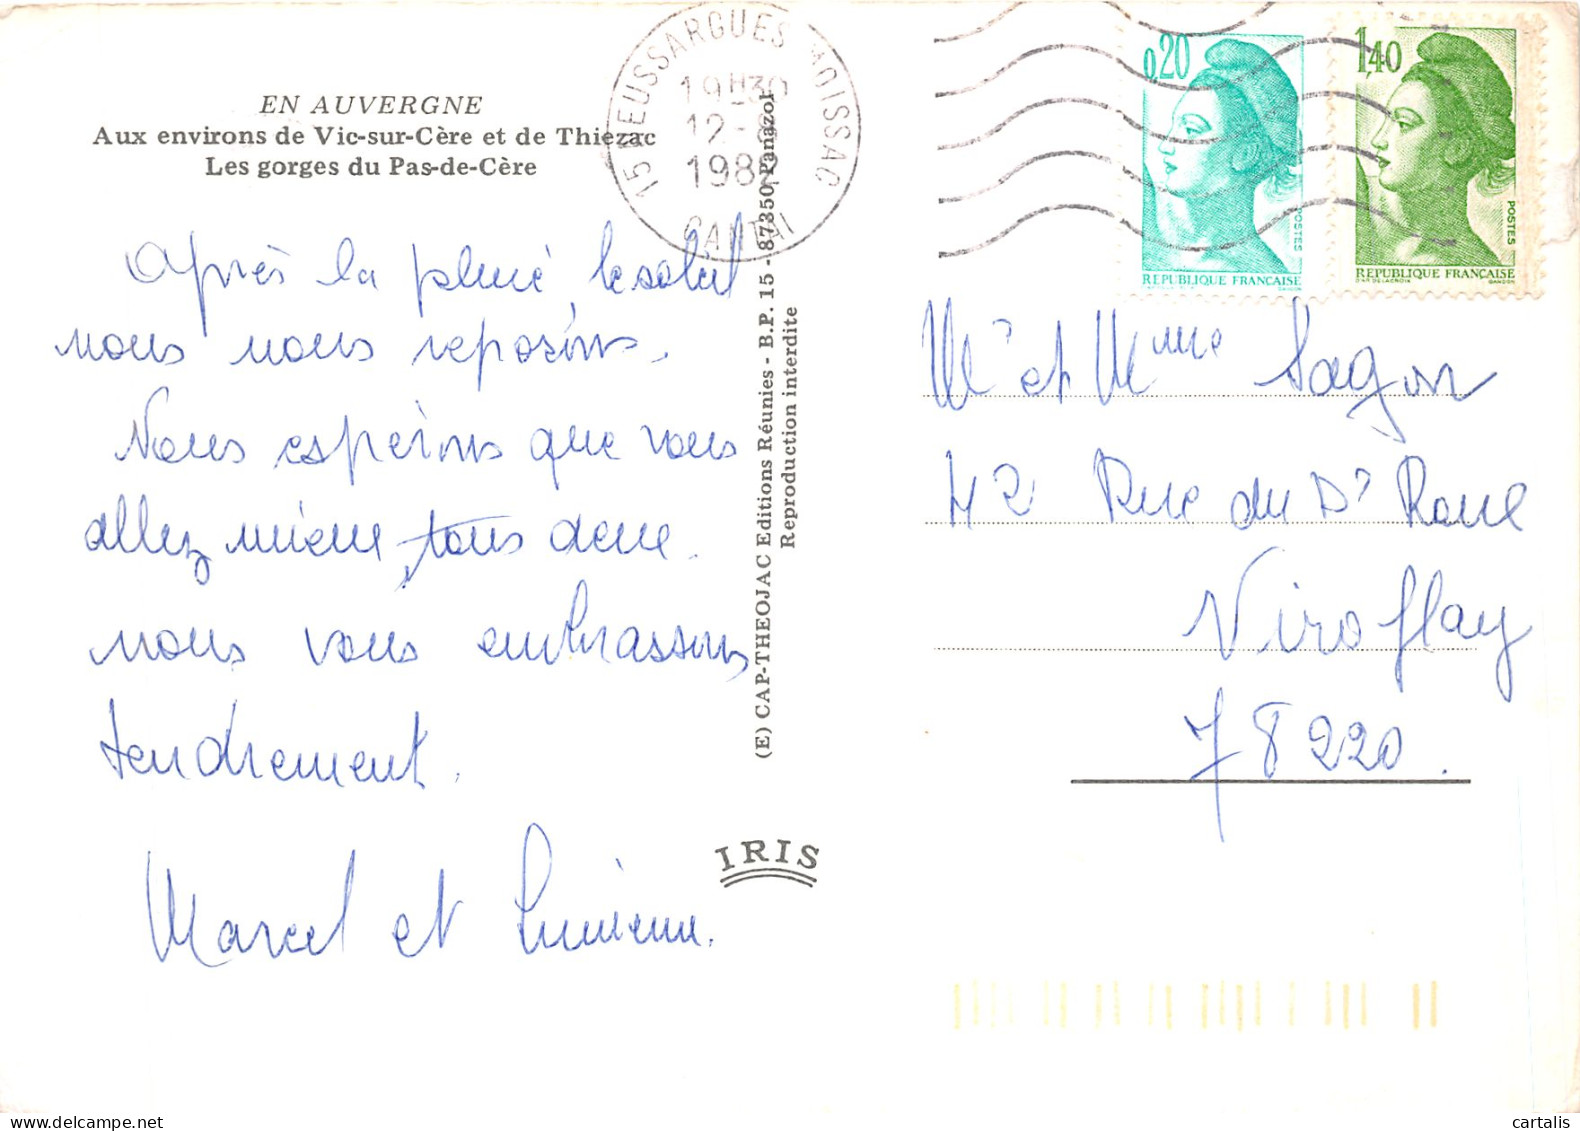 EN AUVERGNE
Aux environs de Vic-sur-Cère et de Thiézac
Les gorges du Pas-de-Cère
Après la pluie, le soleil
nous nous reposons.
Nous espérons que vous
allez mieux tous deux.
nous vous embrassons
tendrement.
Marcel et
15 NEUSSARGUES MOISSAC
19H30
12-
1982
CANTAL
(E) CAP-THEOJAC Editions Réunies - B.P. 15 - 87350 Panazol
Reproduction interdite
IRIS
0,20
POSTES
REPUBLIQUE FRANÇAISE
GANDON
1,40
POSTES
REPUBLIQUE FRANÇAISE
D'AP. DELACROIX GANDON
Mr et Mme Sagon
42 Rue du Dr Roux
Viroflay
78220.
cartalis
www.delcampe.net